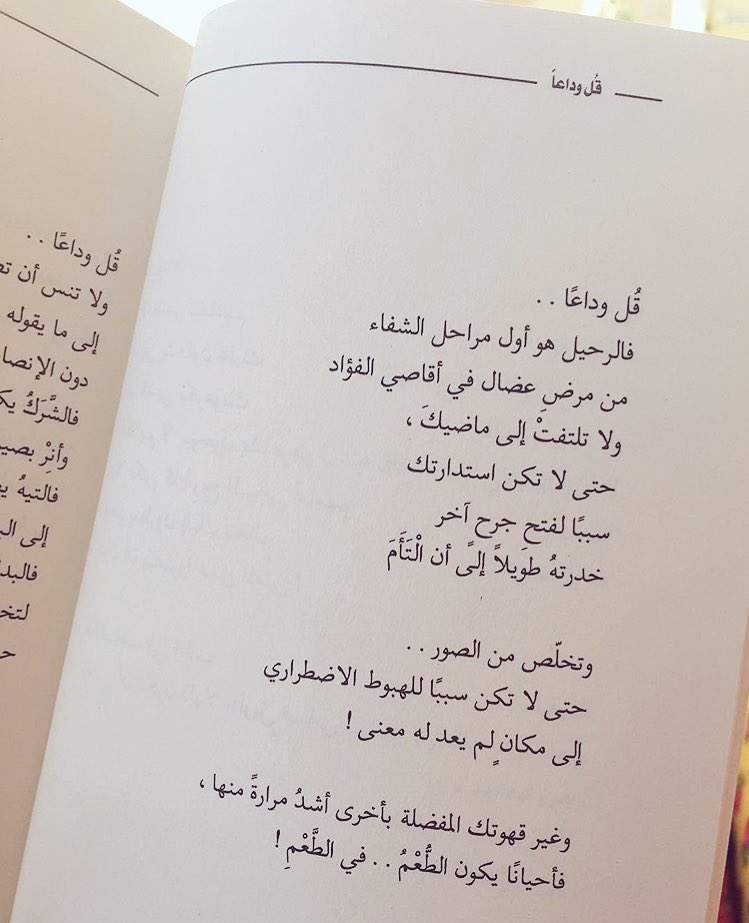 قُل وداعاً
قُل وداعًا . .
فالرحيل هو أول مراحل الشفاء
من مرضٍ عضال في أقاصي الفؤاد
ولا تلتفتْ إلى ماضيكَ ،
حتى لا تكن استدارتك
سببًا لفتح جرح آخر
خدرتهُ طويلاً إلى أن الْتَأَمَ
وتخلّص من الصور . .
حتى لا تكن سببًا للهبوط الاضطراري
إلى مكانٍ لم يعد له معنى !
وغير قهوتك المفضلة بأخرى أشدُ مرارةً منها ،
فأحيانًا يكون الطُّعْمُ . . في الطَّعْمِ !
قُل وداعًا . .
ولا تنس أن
إلى ما يقوله
دون
فالشَّرَكُ
وأنِرْ
فالتيهُ
إلى